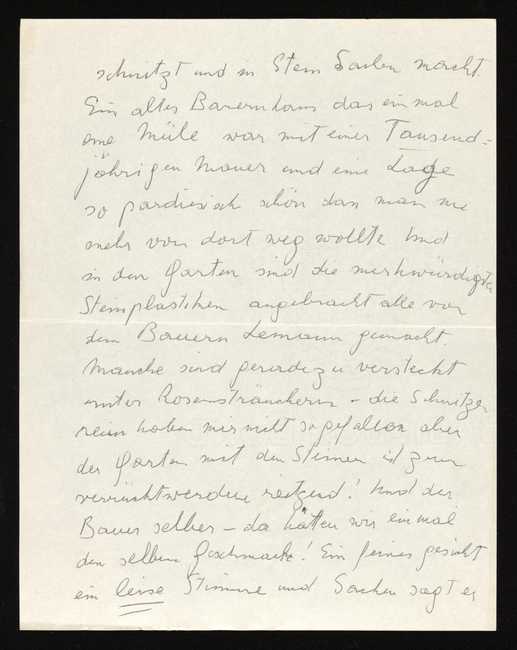 schnitzt und in Stein Sachen macht.
Ein altes Bauernhaus das einmal
eine Müle war mit einer Tausend=
jährigen Mauer und eine Lage
so pardiesisch schön dan man nie
mehr von dort weg wollte Und
in den Garten sind die merkwürdigsten
Steinplastiken angebracht alle von
dem Bauern Lemann gemacht.
Manche sind geradezu versteckt
unter Rosensträuchern – die Schnitze
reien haben mir nitt so gefallen aber
der Garten mit den Steinen ist zum
verrücktwerden reitzend! Und der
Bauer selber – da hätten wir einmal
den selben Geschmack! Ein feines gesicht
ein leise Stimme und Sachen sagt er